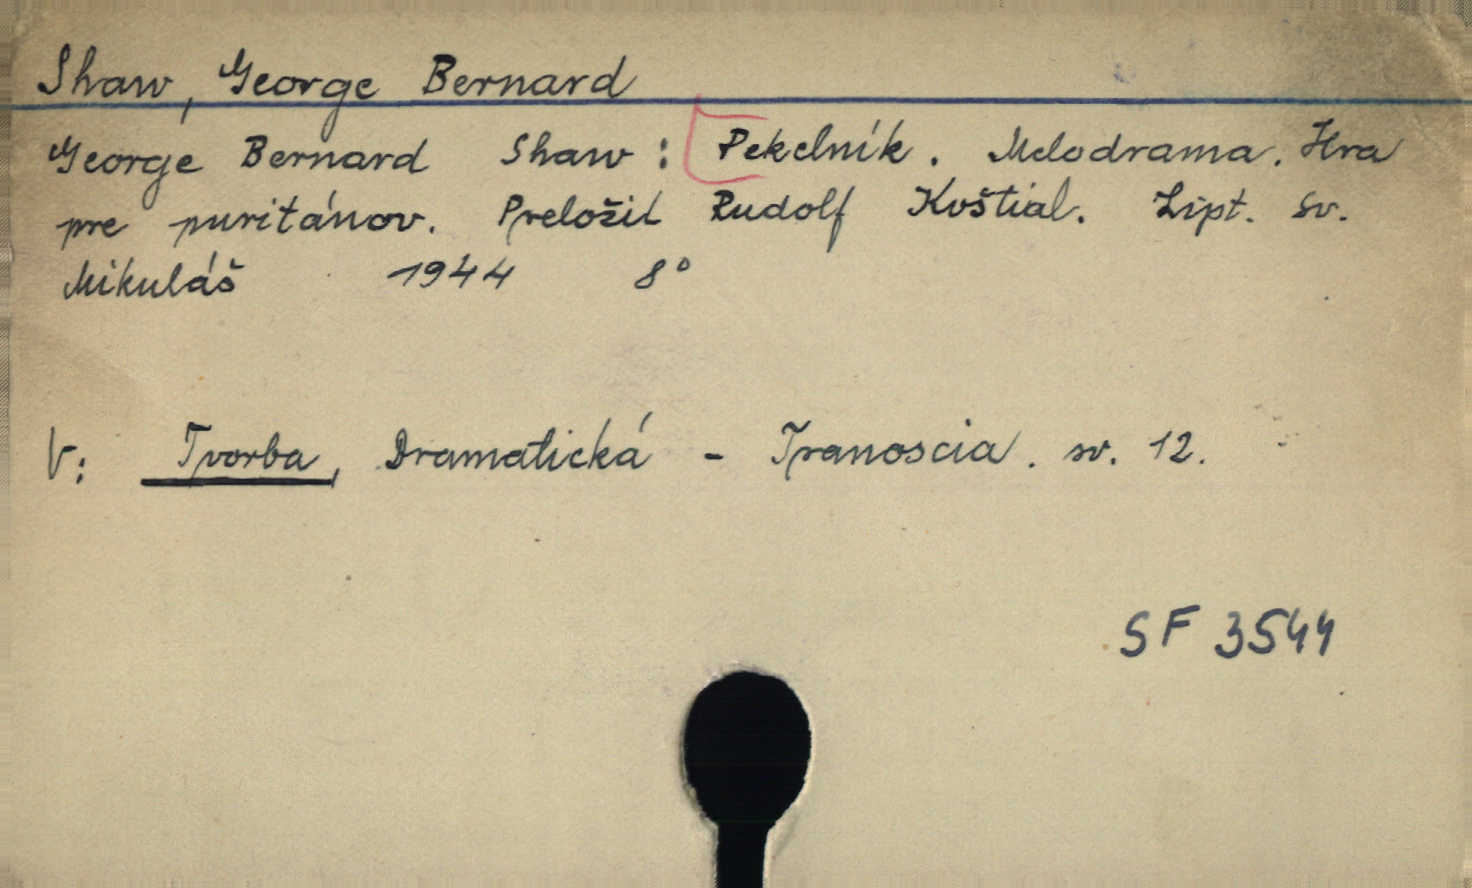 Shaw, George Bernard
George Bernard Shaw: Pekelník. Melodrama. Hra
pre puritánov. Preložil Rudolf Koštial. Lipt. Sv.
Mikuláš 1944 8°
V: Tvorba, Dramatická - Tranoscia. sv. 12.
SF 3544